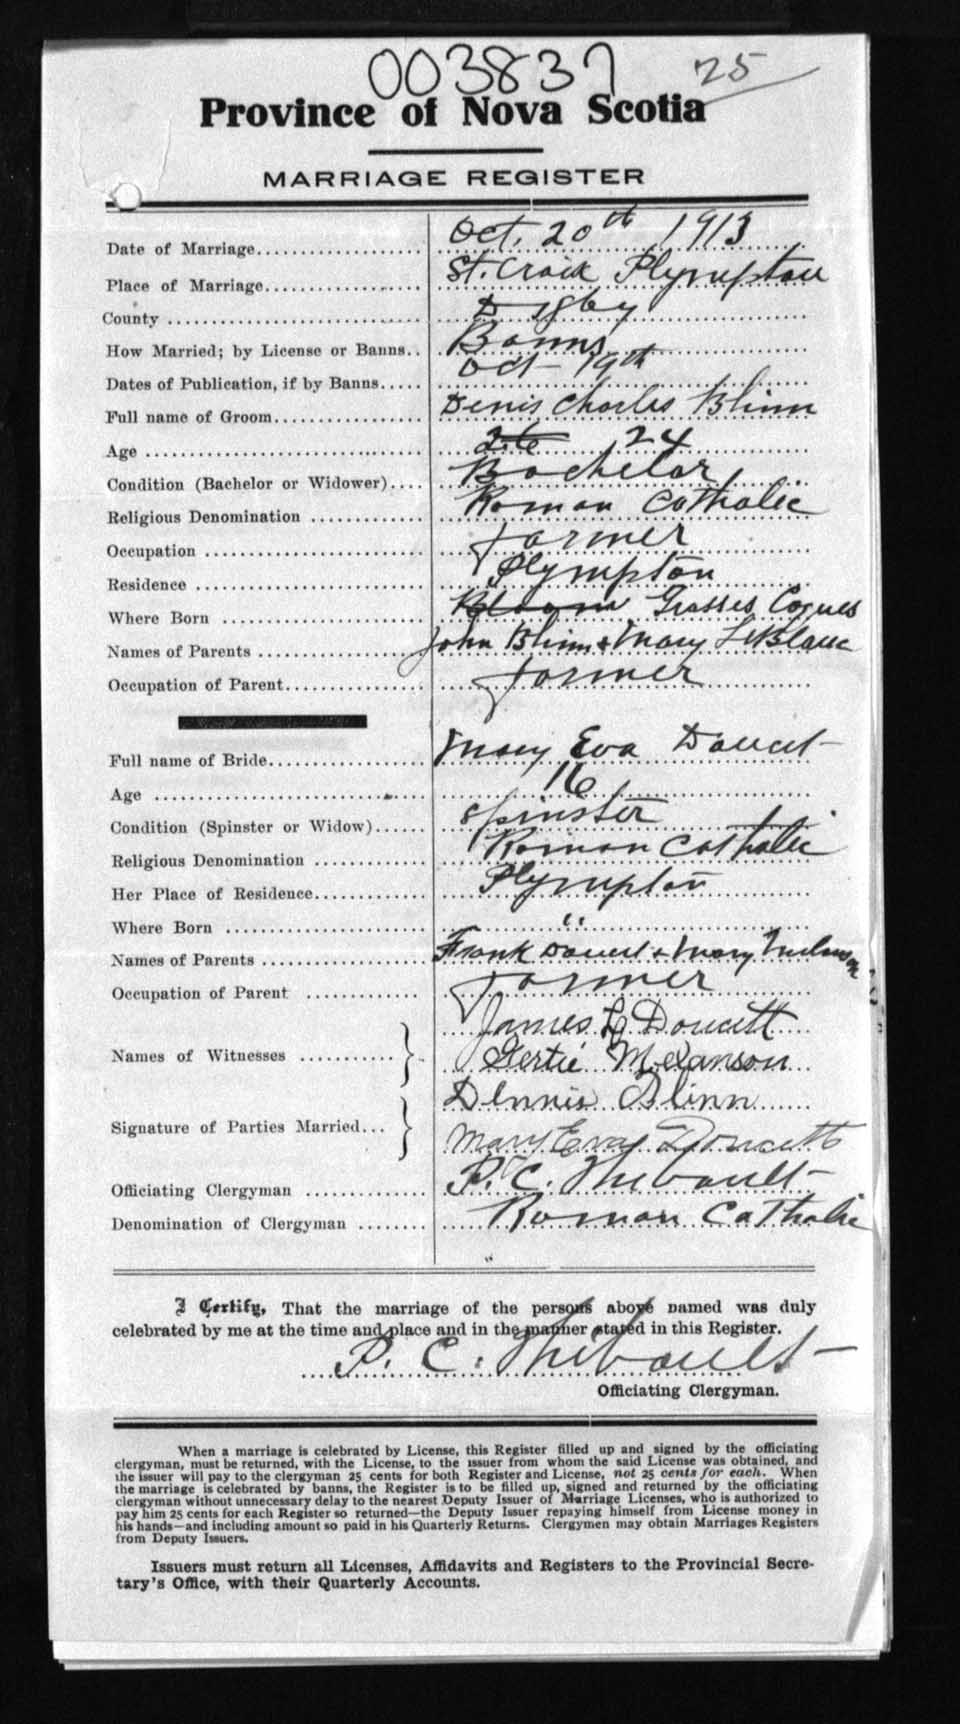 003837 25
Province of Nova Scotia
MARRIAGE REGISTER
Date of Marriage Oct. 20th 1913
Place of Marriage St. Croix Plympton
County Digby
How Married; by License or Banns Banns
Dates of Publication, if by Banns Oct 19th
Full name of Groom Denis Charles Blinn
Age 24
Condition (Bachelor or Widower) Bachelor
Religious Denomination Roman Catholic
Occupation farmer
Residence Plympton
Where Born Grosses Coques
Names of Parents John Blinn & Mary LeBlanc
Occupation of Parent farmer
Full name of Bride Mary Eva Doucet
Age 16
Condition (Spinster or Widow) Spinster
Religious Denomination Roman Catholic
Her Place of Residence Plympton
Where Born "
Names of Parents Frank Doucet & Mary Melanson
Occupation of Parent farmer
James L Doucett
Names of Witnesses Gertie Melanson
Dennis Blinn
Signature of Parties Married Mary Eva Doucett
Officiating Clergyman P. C. Thibault
Denomination of Clergyman Roman Catholic
I Certify, That the marriage of the persons above named was duly
celebrated by me at the time and place and in the manner stated in this Register.
P. C. Thibault
Officiating Clergyman.
When a marriage is celebrated by License, this Register filled up and signed by the officiating
clergyman, must be returned, with the License, to the issuer from whom the said License was obtained, and
the issuer will pay to the clergyman 25 cents for both Register and License, not 25 cents for each. When
the marriage is celebrated by banns, the Register is to be filled up, signed and returned by the officiating
clergyman without unnecessary delay to the nearest Deputy Issuer of Marriage Licenses, who is authorized to
pay him 25 cents for each Register so returned—the Deputy Issuer repaying himself from License money in
his hands—and including amount so paid in his Quarterly Returns. Clergymen may obtain Marriages Registers
from Deputy Issuers.
Issuers must return all Licenses, Affidavits and Registers to the Provincial Secre-
tary's Office, with their Quarterly Accounts.